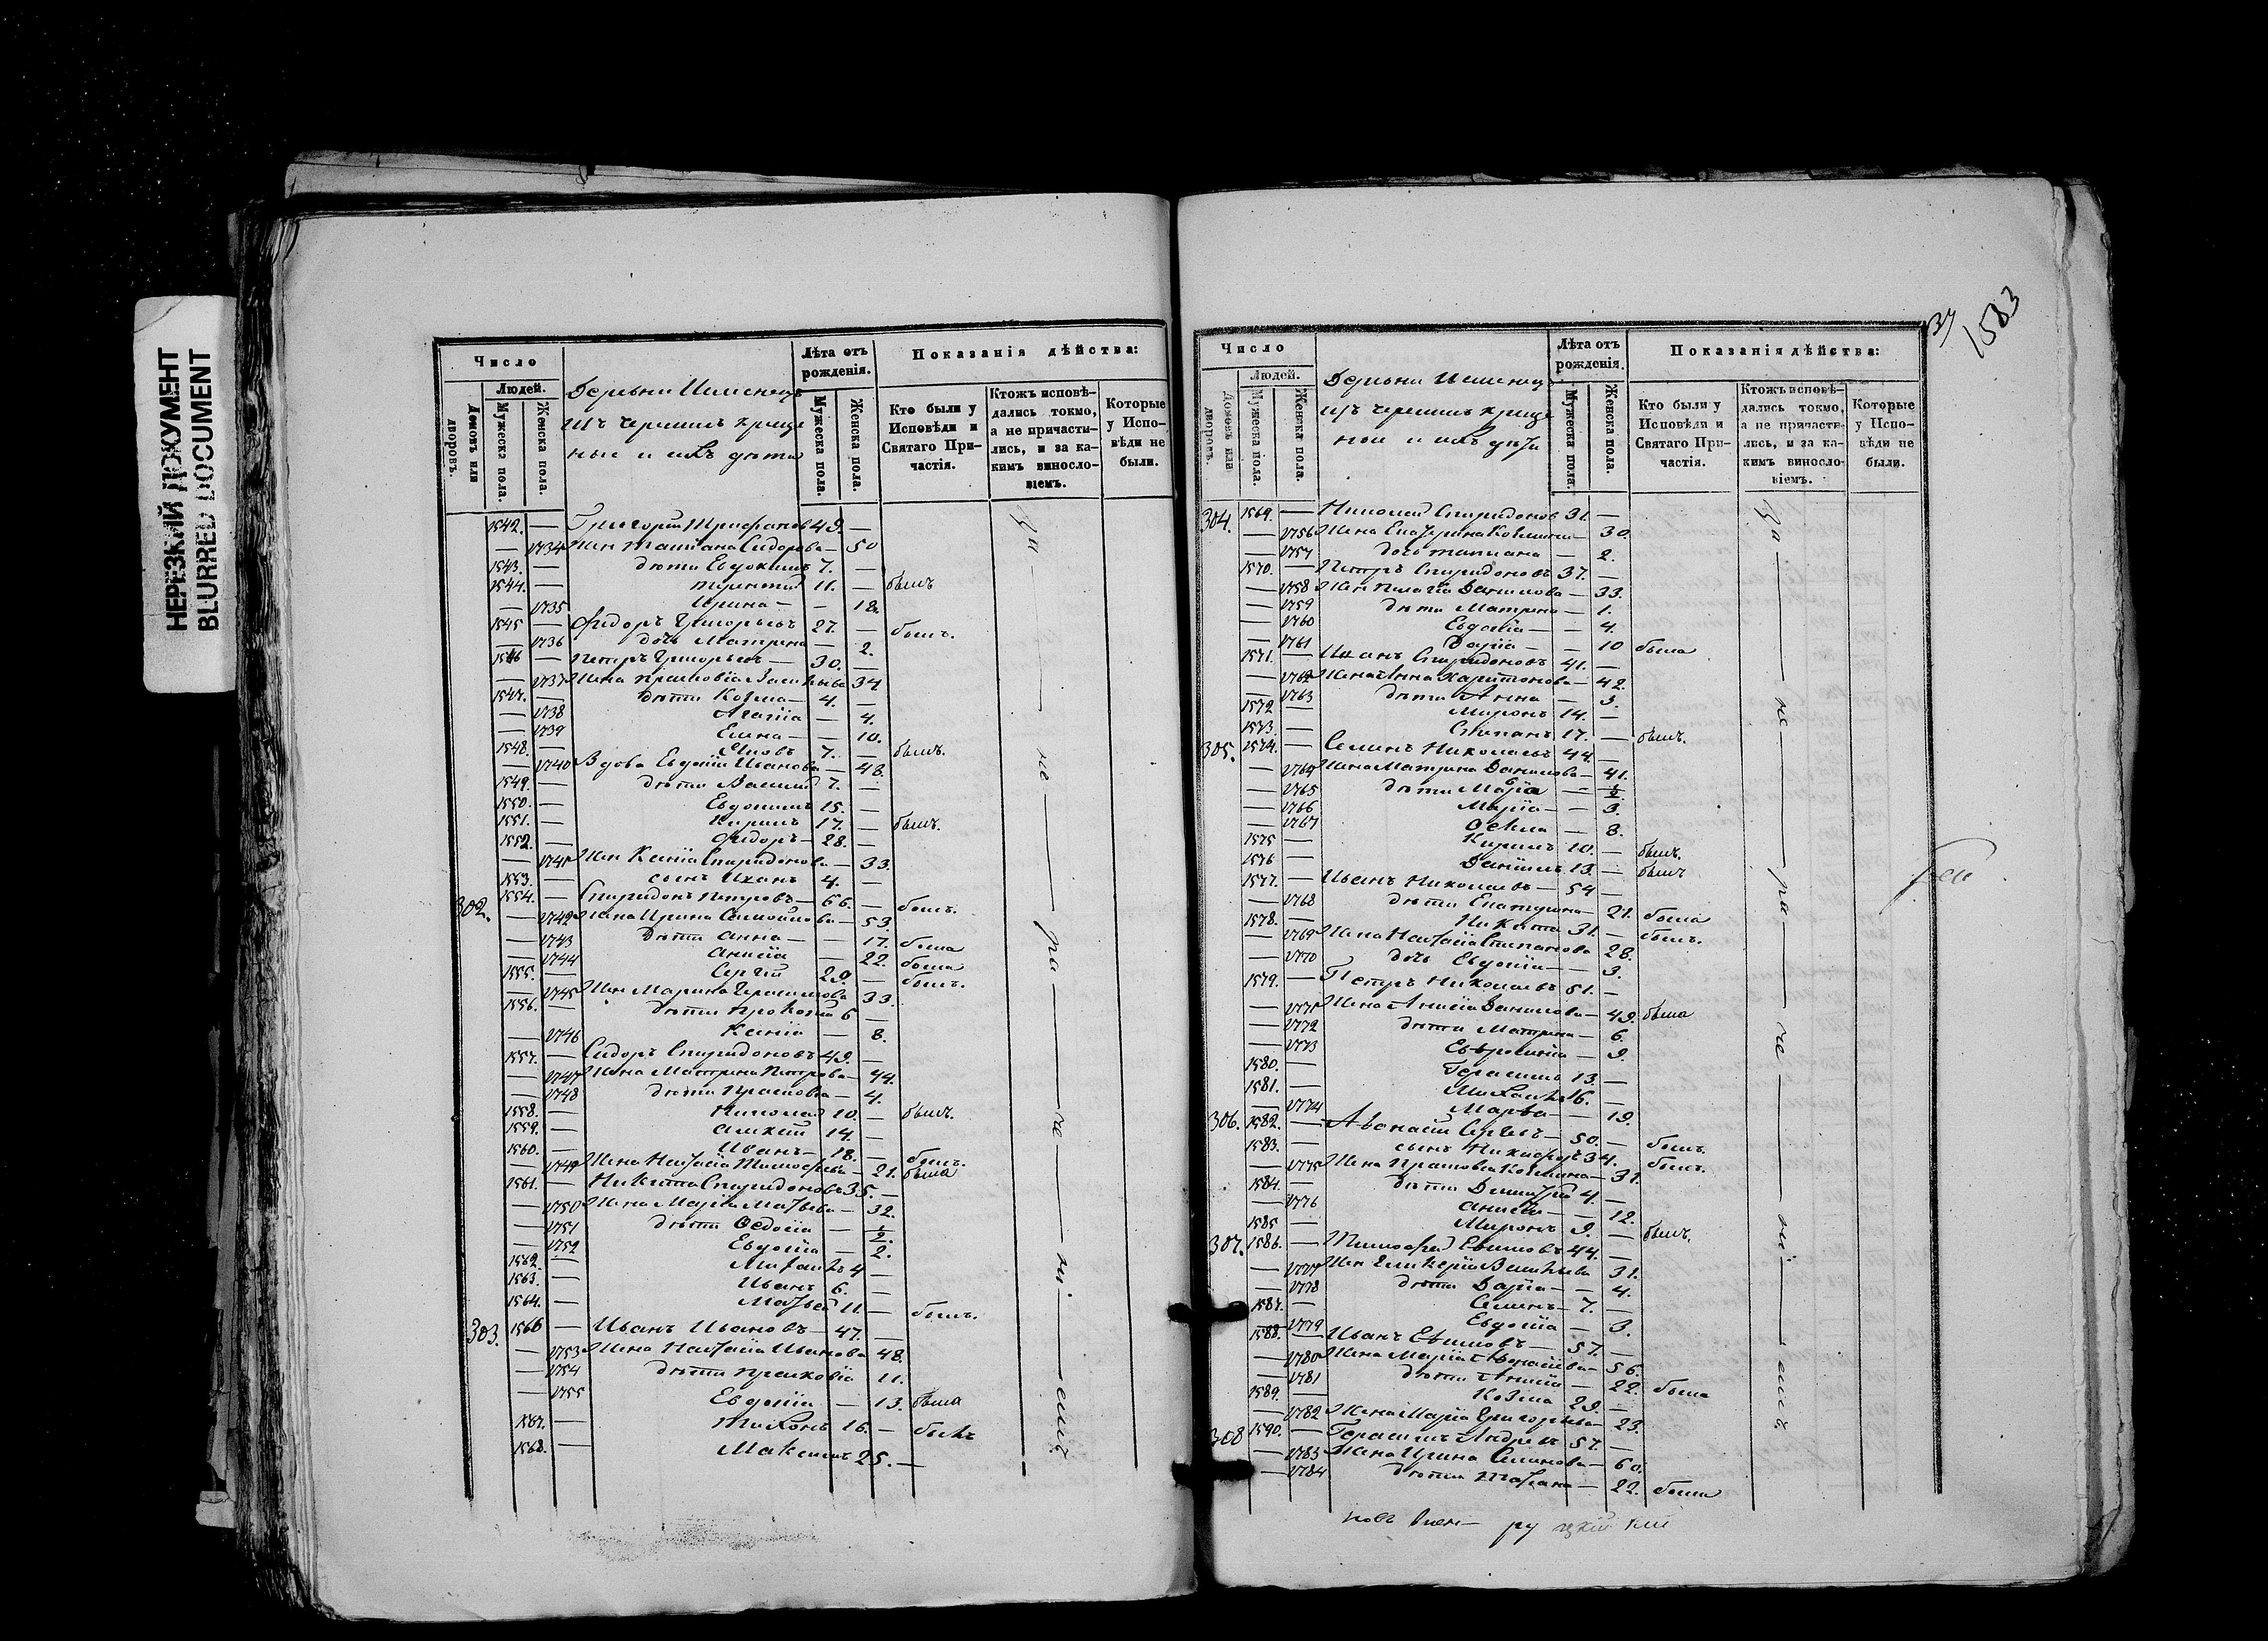 НЕРЕЗКИЙ ДОКУМЕНТ
BLURRED DOCUMENT
Число
Людей.
Домовъ или дворовъ.
Мужеска пола.
Женска пола.
Деревни
изъ черемисъ креще
ные и ихъ дѣти
Лѣта отъ рожденія.
Мужеска пола.
Женска пола.
Показанія дѣйства:
Кто были у Исповѣди и Святаго Причастія.
Ктожъ исповѣдались токмо, а не причастились, и за какимъ винословіемъ.
Которые у Исповѣди не были.
1542. — Григорій Трифановъ 49. —
— 1734 Жен Татіана Сидорова — 50
1543. — дѣти Евдокимъ 7. —
1544. — Терентій 11. — былъ
— 1735 Ирина — — 18.
1545 — Фидоръ Григорьевъ 27. — былъ.
— 1736 дочь Матрина — 2.
1546 — Петръ Григорьевъ — 30. —
— 1737 Жена Прасковія Васильева 34
1547. — дѣти Козма — 4. —
— 1738 Агапіа — 4.
— 1739 Елина — — 10.
1548. — Яковъ 7. — былъ.
— 1740 Вдова Евдокія Иванова — 48.
1549. — дѣти Василій 7. —
1550. — Евдокимъ 15. —
1551. — Кирилъ 17. — былъ.
1552. — Фидоръ — 28. —
— 1741 Жен Ксенія Спиридонова — 33.
1553. — сынъ Иванъ 4. —
302. 1554. — Спиридонъ Петровъ — 66. — былъ.
— 1742 Жена Ирина Самойлова — 53.
— 1743 Дѣти Анна — — 17. была
— 1744 Анисіа — 22. была
1555. — Сергій 29. — былъ.
— 1745 Жен Марина Герасимова 33.
1556. — дѣти Прокопій 6 —
— 1746 Ксенія — 8.
1557. — Сидоръ Спиридоновъ 49. —
— 1747 Жена Матрина Петрова — 44.
— 1748 дѣти Прасковіа — 4.
1558. — Николай 10. — былъ.
1559. — Алексѣй 14. —
1560. — Иванъ — 18. — былъ.
— 1749 Жена Настасіа Тимофѣева — 21. была
1561. — Никита Спиридоновъ 35. —
— 1750 Жена Маріа Матвѣева — 32.
— 1751 дѣти Ѳедосіа — 1/2.
— 1752 Евдокіа — 2.
1562. — Михаилъ 4 —
1563. — Иванъ 6. —
1564. — Матвѣй 11. — былъ.
303. 1566 — Иванъ Ивановъ — 47. —
— 1753 Жена Настасіа Иванова 48.
— 1754 дѣти Прасковіа 11.
— 1755 Евдокіа — 13. была
— Тихонъ 16. — былъ
1568. — Максимъ 25. —
За не ра че ні емъ
37
1583
Число
Людей.
Домовъ или дворовъ.
Мужеска пола.
Женска пола.
Деревни
изъ черемисъ креще
ные и ихъ дѣти
Лѣта отъ рожденія.
Мужеска пола.
Женска пола.
Показанія дѣйства:
Кто были у Исповѣди и Святаго Причастія.
Ктожъ исповѣдались токмо, а не причастились, и за какимъ винословіемъ.
Которые у Исповѣди не были.
304. 1569. — Николай Спиридоновъ 31. —
— 1756 Жена Екатерина Козмина — 30.
— 1757 дочь Татиана — 2.
1570. — Петръ Спиридоновъ 37. —
— 1758 Жен Пелагіа Данилова — 33.
— 1759 дѣти Матрина — 1.
— 1760 Евдокіа — — 4.
— 1761 Даріа — — 10 была
1571. — Иванъ Спиридоновъ 41. —
— 1762 Жена Анна Харитонова — 42.
— 1763 дѣти Анна — 3.
1572 — Миронъ 14. —
1573. — Степанъ 17. — былъ.
305. 1574. — Семинъ Николаевъ 44. —
— 1764 Жена Матрина Данилова — 41.
— 1765 дѣти Маріа — 1/2
— 1766 Маріа — — 3.
— 1767 — 8.
1575 — Кирилъ 10. — былъ.
1576 — Даніилъ 13. — былъ
1577. — Иванъ Николаевъ — 54 —
— 1768 дѣти Екатерина — 21. была
1578. — Никита 31. — былъ.
— 1769 Жена Настасіа Степанова 28.
— 1770 дочь Евдокіа — — 3.
1579. — Петръ Николаевъ 51. —
— 1771 Жена Анисіа Данилова — 49. была
— 1772 дѣти Матрина — 6.
— 1773 Евфросиніа — 9.
1580. — Герасимъ 13. —
1581. — Михаилъ 16. —
— 1774 Марѳа — — 19.
306. 1582. — Аѳонасій Сергѣевъ — 50. — былъ.
1583. — сынъ Никифоръ 34. — былъ.
— 1775 Жена Прасковіа Козмина — 31.
1584. — дѣти Димитрій 4. —
— 1776 Анисіа — — 12.
1585 — Миронъ 9. — былъ.
307. 1586. — Тимофей Ефимовъ 44. —
— 1777 Жен Гликеріа Васильева 31.
— 1778 дѣти Даріа — — 4.
1587. — Семинъ — 7. —
— 1779 Евдокіа — 3.
1588. — Иванъ Ефимовъ — 57. —
— 1780 Жена Маріа Аѳонасіева — 56.
— 1781 дѣти Анисіа — 22. была
1589. — Козма 29. —
— 1782 Жена Маріа Григорьева — 23.
308 1590. — Герасимъ Андреевъ 57. —
— 1783 Жена Ирина Семинова — 60.
— 1784 дѣти Татіана — 22. была
За не ра че ні емъ